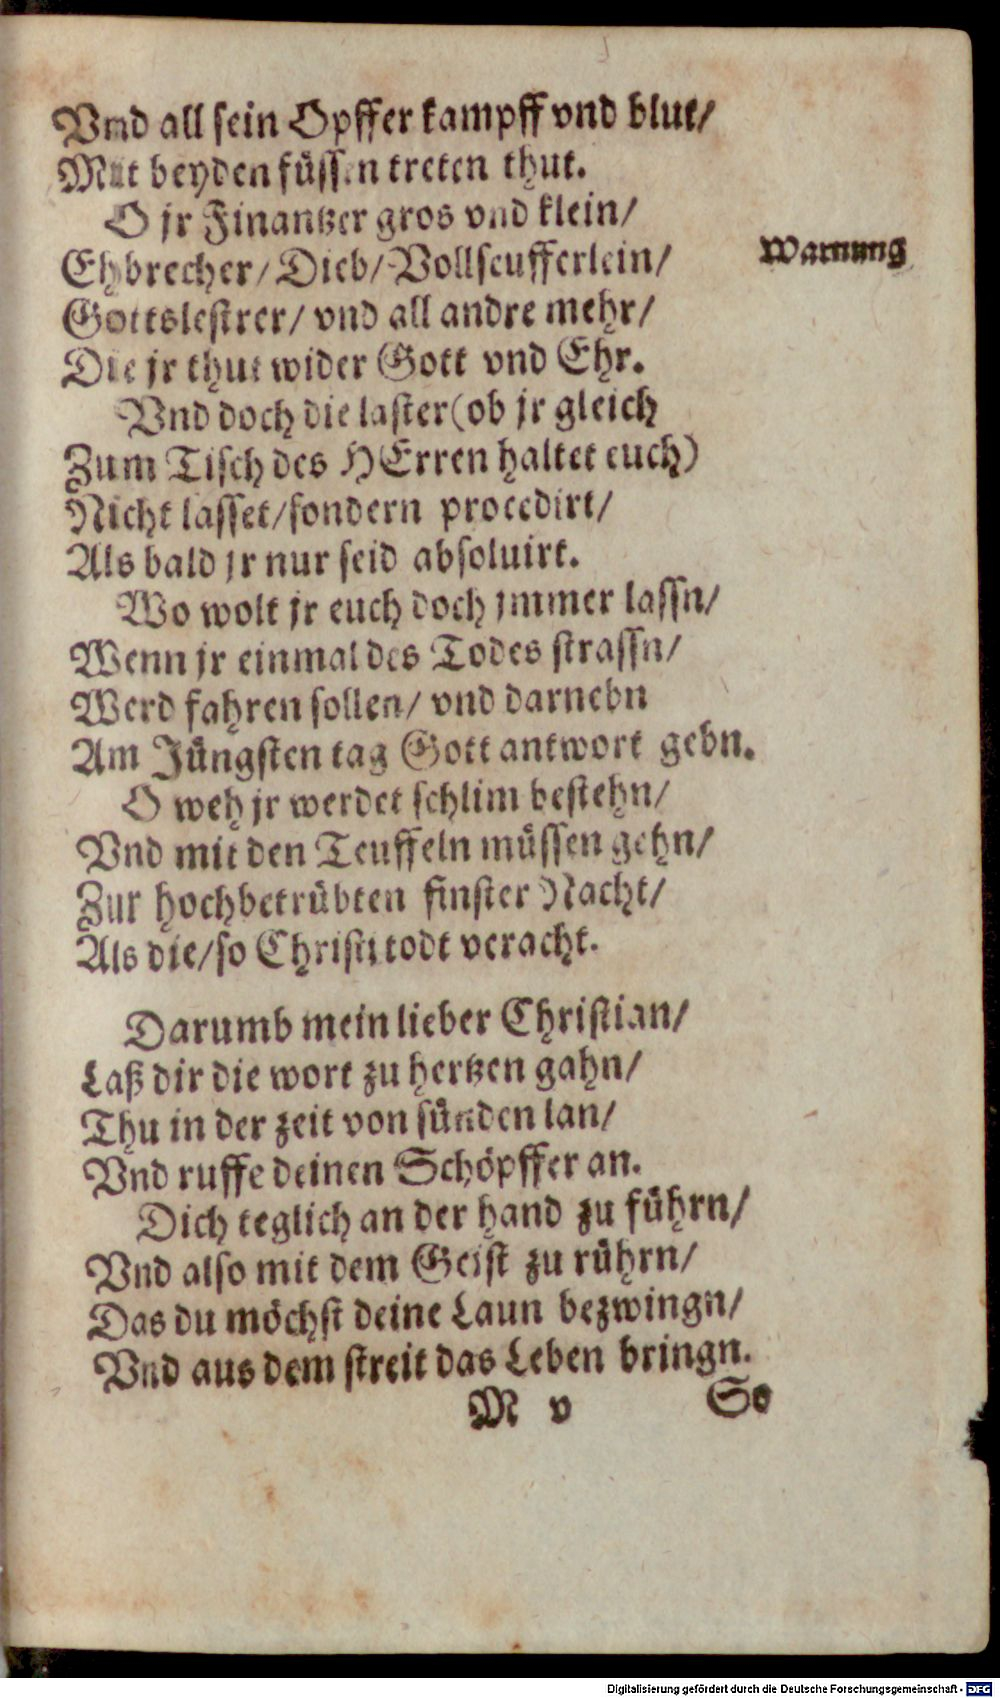 Vnd all sein Opffer kampff vnd blut/
Mit beyden füssen treten thut.
O jr Finantzer gros vnd klein/
Ehbrecher/ Dieb/ Vollseufferlein/
Warnung
Gottslestrer/ vnd all andre mehr/
Die jr thut wider Gott vnd Ehr.
Vnd doch die laster (ob jr gleich
Zum Tisch des HErren haltet euch)
Nicht lasset/ sondern procedirt/
Als bald jr nur seid absoluirt.
Wo wolt jr euch doch jmmer lassn/
Wenn jr einmal des Todes strassn/
Werd fahren sollen/ vnd darnebn
Am Jüngsten tag Gott antwort gebn.
O weh jr werdet schlim bestehn/
Vnd mit den Teuffeln müssen gehn/
Zur hochbetrübten finster Nacht/
Als die/ so Christi todt veracht.
Darumb mein lieber Christian/
Laß dir die wort zu hertzen gahn/
Thu in der zeit von sünden lan/
Vnd ruffe deinen Schöpffer an.
Dich teglich an der hand zu führn/
Vnd also mit dem Geist zu rührn/
Das du möchst deine Laun bezwingn/
Vnd aus dem streit das Leben bringn.
M v So
Digitalisierung gefördert durch die Deutsche Forschungsgemeinschaft - DFG